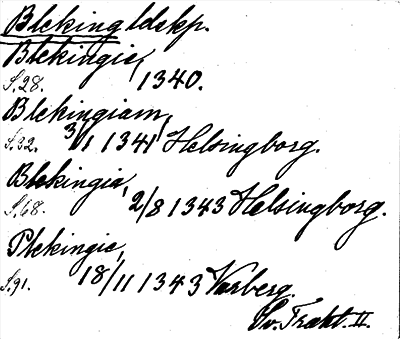 Bleking ldskp.
Blekingie,
S. 28. 1340.
Blekingiam,
S. 32. 3/1 1341 Helsingborg.
Blekingia,
S. 68. 2/8 1343 Helsingborg.
Plekingie,
S. 91. 18/11 1343 Varberg.
Sv. Trakt. II.